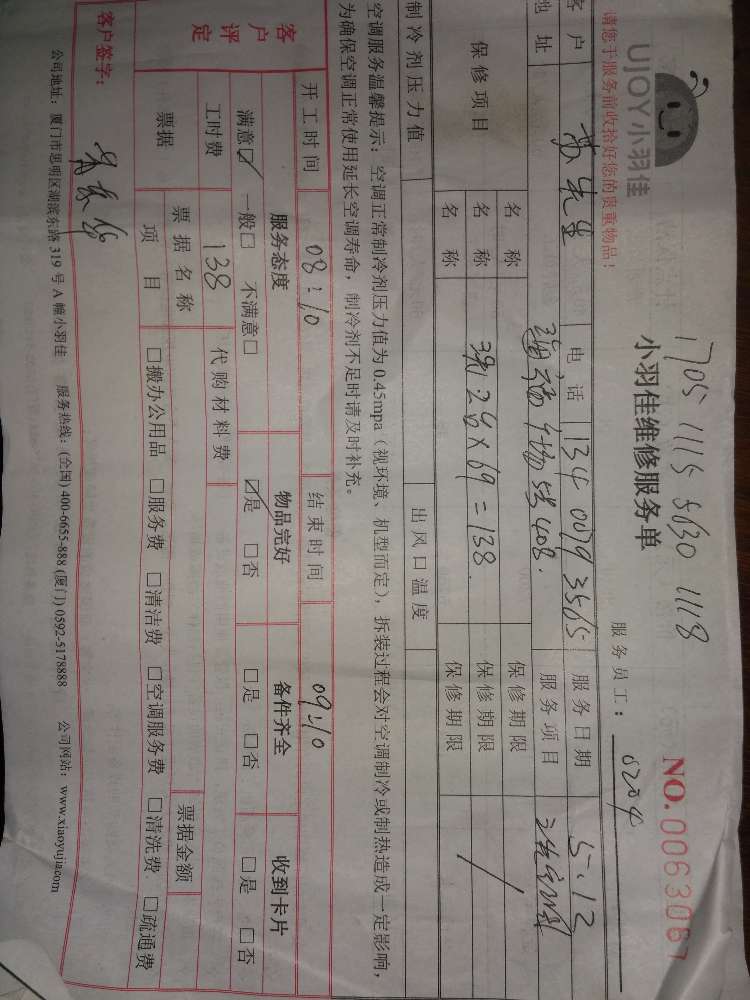 1705 1115 5630 1118
UJOY小羽佳
小羽佳维修服务单
NO.0063067
请您于服务前收拾好您的贵重物品！
服务员工： 0204
客户 苏先生 电话 134 0079 3565 服务日期 5.12
地址 408. 服务项目
保修项目 名称 保修期限
名称 28×69=138. 保修期限
名称 保修期限
制冷剂压力值 出风口温度
空调服务温馨提示：空调正常制冷剂压力值为 0.45mpa（视环境、机型而定），拆装过程会对空调制冷或制热造成一定影响，
为确保空调正常使用延长空调寿命，制冷剂不足时请及时补充。
开工时间 08:10 结束时间 09:10
客户评定 服务态度 物品完好 备件齐全 收到卡片
满意☑ 一般□ 不满意□ ☑是 □否 □是 □否 □是 □否
工时费 138 代购材料费
票据 票据名称 票据金额
项目 □搬办公用品 □服务费 □清洁费 □空调服务费 □清洗费 □疏通费
客户签字：
公司地址：厦门市思明区湖滨东路 319 号 A 幢小羽佳 服务热线：(全国) 400-6655-888 (厦门) 0592-5178888 公司网站：www.xiaoyujia.com